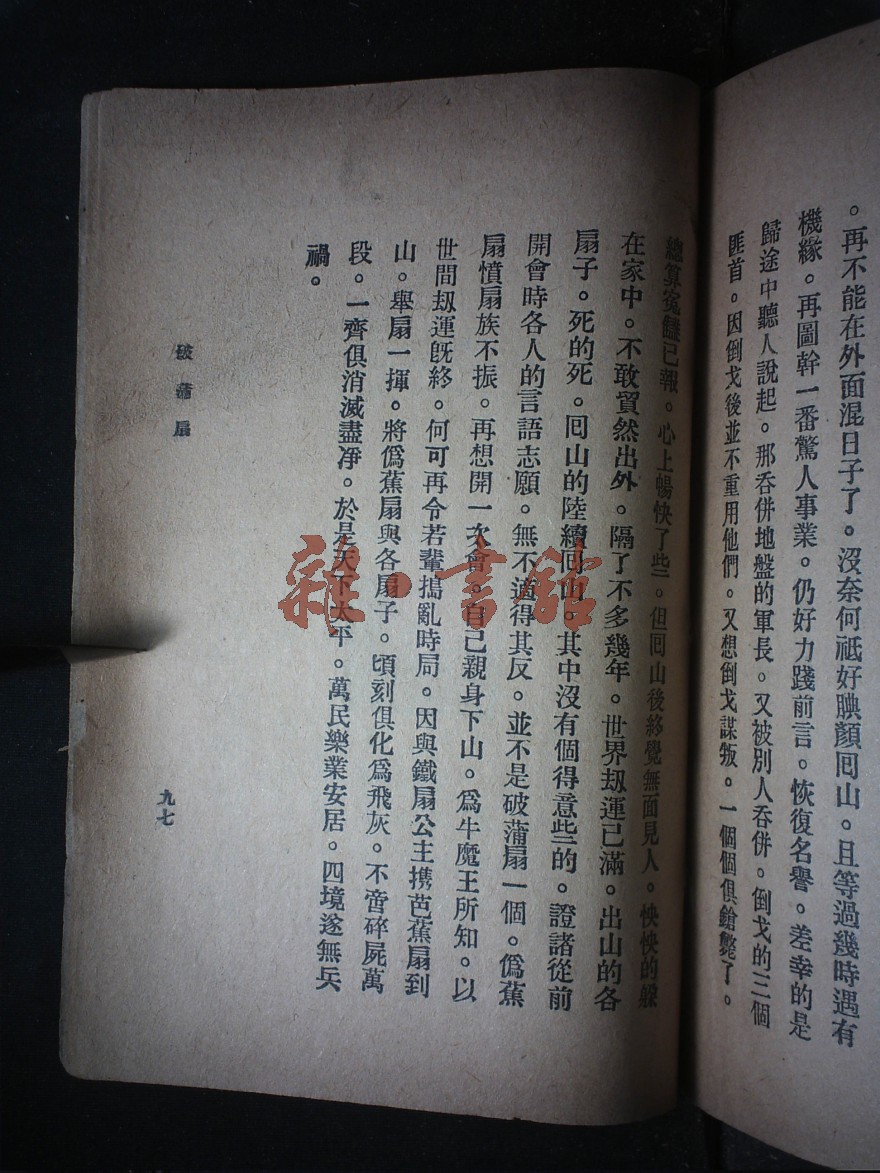 。再不能在外面混日子了。沒奈何祗好腆顏囘山。且等過幾時遇有
機緣。再圖幹一番驚人事業。仍好力踐前言。恢復名譽。差幸的是
歸途中聽人說起。那吞併地盤的軍長。又被別人吞併。倒戈的三個
匪首。因倒戈後並不重用他們。又想倒戈謀叛。一個個俱鎗斃了。
總算冤讎已報。心上暢快了些。但囘山後終覺無面見人。怏怏的躱
在家中。不敢貿然出外。隔了不多幾年。世界刼運已滿。出山的各
扇子。死的死。囘山的陸續囘山。其中沒有個得意些的。證諸從前
開會時各人的言語志願。無不適得其反。並不是破蒲扇一個。僞蕉
扇憤扇族不振。再想開一次會。自己親身下山。爲牛魔王所知。以
世間刼運旣終。何可再令若輩搗亂時局。因與鐵扇公主携芭蕉扇到
山。舉扇一揮。將僞蕉扇與各扇子。頃刻俱化爲飛灰。不啻碎屍萬
段。一齊俱消滅盡凈。於是天下太平。萬民樂業安居。四境遂無兵
禍。
破蒲扇
九七
雜·書館